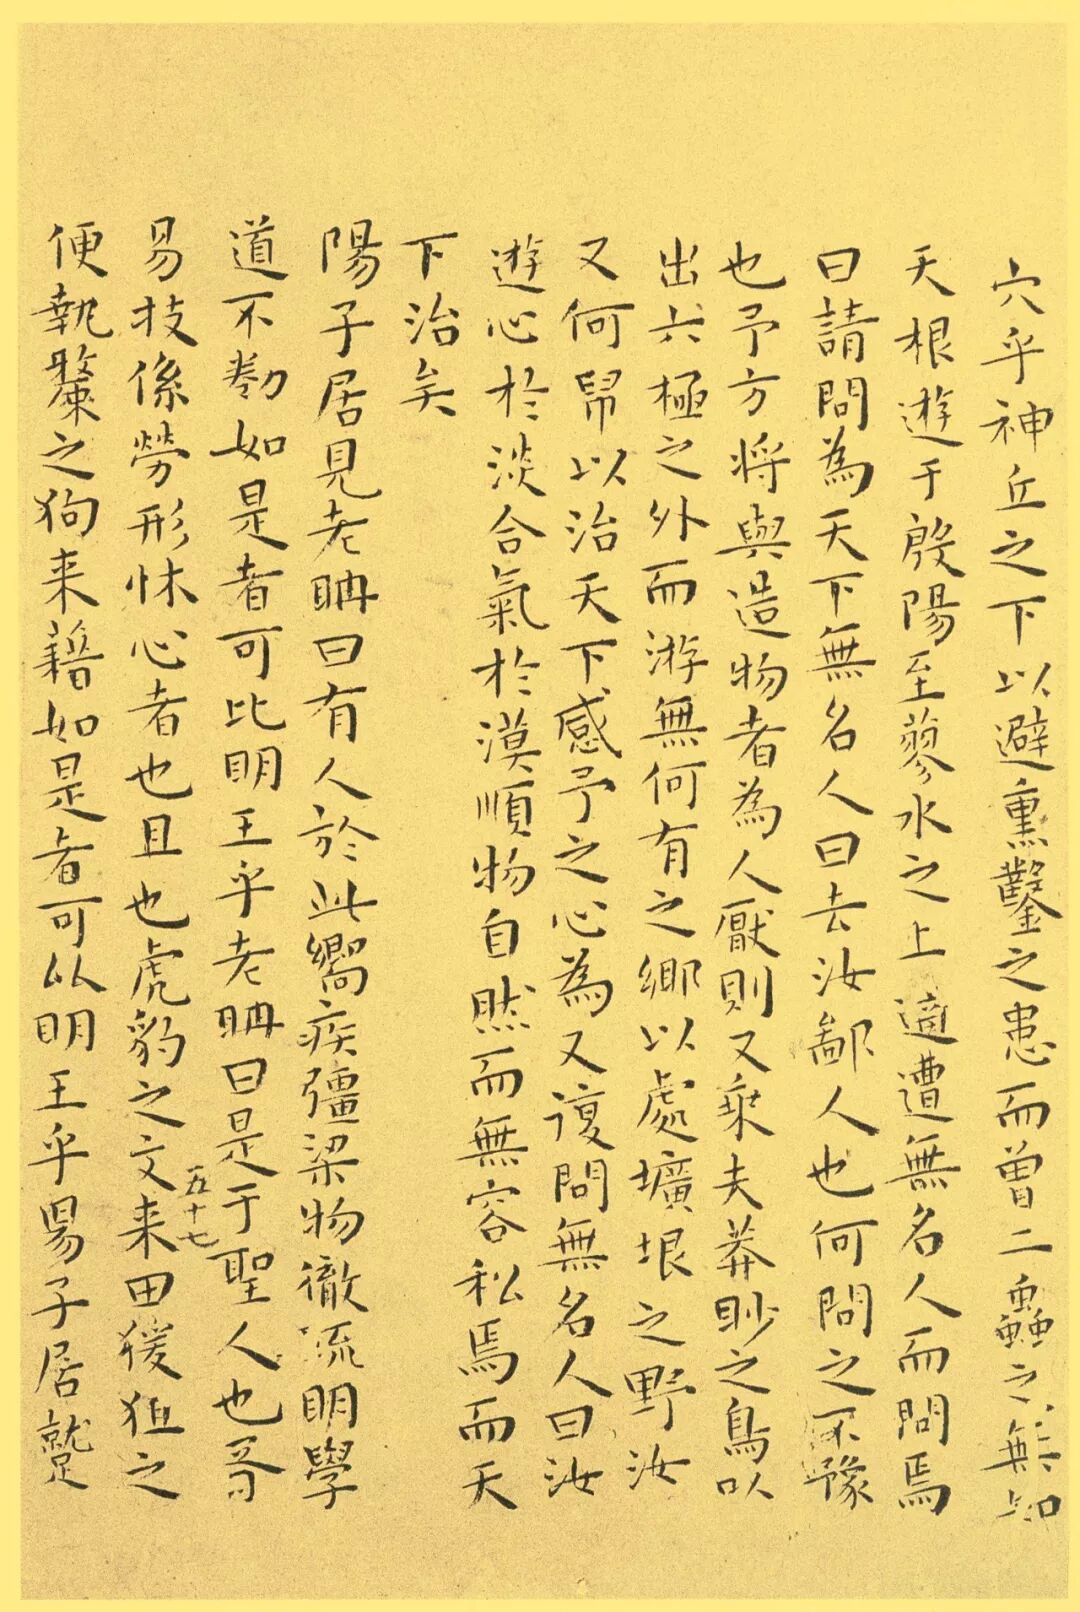 穴乎神丘之下以避熏鑿之患而曾二蟲之無知
天根遊于殷陽至蓼水之上適遭無名人而問焉
曰請問為天下無名人曰去汝鄙人也何問之不豫
也予方将與造物者為人厭則又乗夫莽眇之鳥以
出六極之外而游無何有之鄉以處壙埌之野汝
又何帠以治天下感予之心為又復問無名人曰汝
遊心於淡合氣於漠順物自然而無容私焉而天
下治矣
陽子居見老聃曰有人於此嚮疾彊梁物徹疏明學
道不勌如是者可比明王乎老聃曰是于聖人也胥
易技係勞形怵心者也且也虎豹之文来田猨狙之
五十七
便執斄之狗来藉如是者可以明王乎陽子居蹵